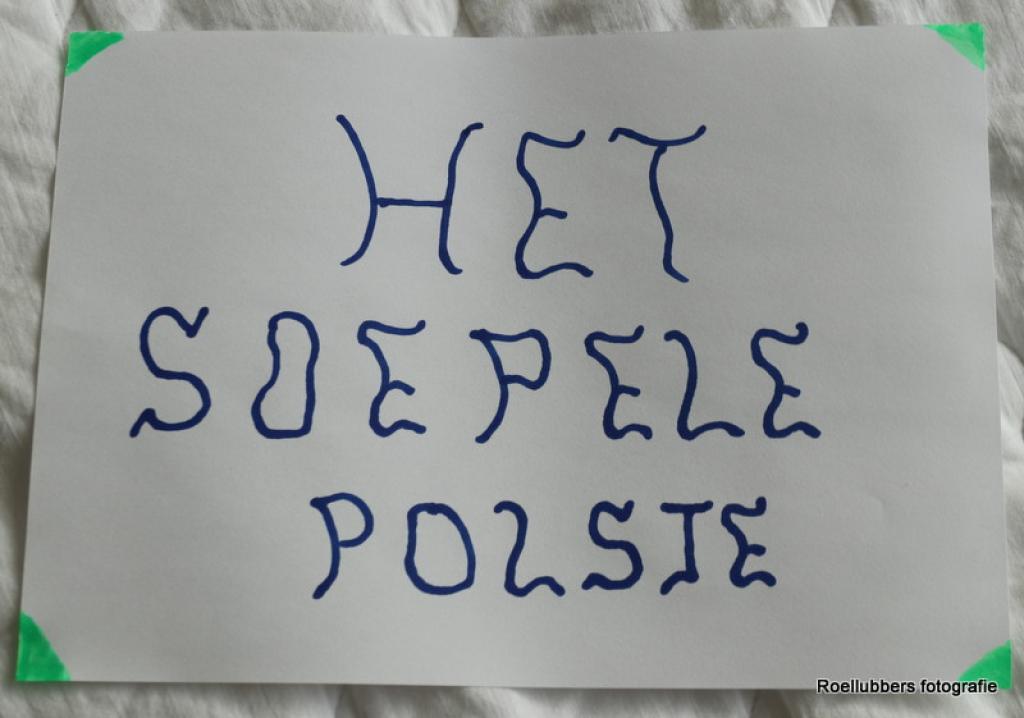 HET
SOEPELE
POLSJE
Roellubbers fotografie